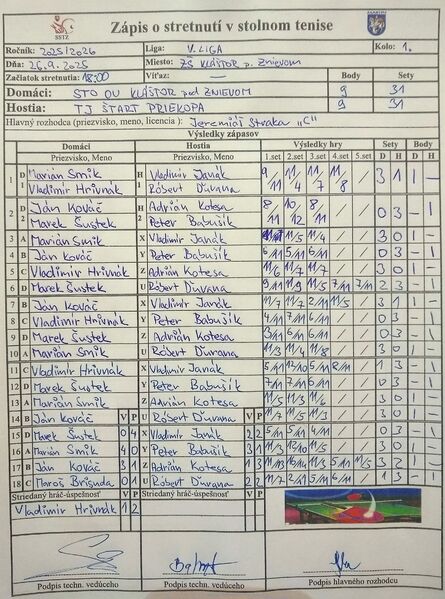 SSTZ Zápis o stretnutí v stolnom tenise MARTIN
Ročník: 2025/2026 Liga: V. LIGA Kolo: 1.
Dňa: 26.9.2025 Miesto: ZŠ KLÁŠTOR p. ZNIEVOM
Začiatok stretnutia: 18:00 Víťaz: — Body Sety
Domáci: STO OU KLÁŠTOR pod ZNIEVOM 9 31
Hostia: TJ ŠTART PRIEKOPA 9 31
Hlavný rozhodca (priezvisko, meno, licencia): Jeremiáš Straka "C"
Výsledky zápasov
Domáci Hostia Výsledky hry Sety Body
Priezvisko, Meno Priezvisko, Meno 1.set 2.set 3.set 4.set 5.set D H D H
1 D1 Marián Smik H1 Vladimír Janák 9/11 11/4 11/7 11/8 / 3 1 1 -
Vladimír Hrivnák Róbert Ďurana
2 D2 Ján Kováč H2 Adrián Kotesa 8/11 10/12 8/11 / / 0 3 - 1
Marek Šustek Peter Babušík
3 A Marián Smik X Vladimír Janák 11/5 11/4 / / 3 0 1 -
4 B Ján Kováč Y Peter Babušík 6/11 5/11 6/11 / / 0 3 - 1
5 C Vladimír Hrivnák Z Adrián Kotesa 11/6 11/7 11/7 / / 3 0 1 -
6 D Marek Šustek U Róbert Ďurana 9/11 11/9 11/5 7/11 7/11 2 3 - 1
7 B Ján Kováč X Vladimír Janák 11/7 11/7 2/11 11/5 / 3 1 1 -
8 C Vladimír Hrivnák Y Peter Babušík / / 0 3 - 1
9 D Marek Šustek Z Adrián Kotesa 3/11 6/11 6/11 / / 0 3 - 1
10 A Marián Smik U Róbert Ďurana 11/3 11/4 11/8 / / 3 0 1 -
11 C Vladimír Hrivnák X Vladimír Janák 5/11 5/11 / 1 3 - 1
12 D Marek Šustek Y Peter Babušík 7/11 7/11 6/11 / / 0 3 - 1
13 A Marián Smik Z Adrián Kotesa 11/5 11/3 11/6 / / 3 0 1 -
14 B Ján Kováč V P U Róbert Ďurana V P 11/7 11/5 11/3 / / 3 0 1 -
15 D Marek Šustek 0 4 X Vladimír Janák 2 2 5/11 5/11 4/11 / / 0 3 - 1
16 A Marián Smik 4 0 Y Peter Babušík 3 1 11/3 11/5 / / 3 0 1 -
17 B Ján Kováč 3 1 Z Adrián Kotesa 1 3 11/4 5/11 11/5 3 2 1 -
18 C Maroš Brigáda 0 1 U Róbert Ďurana 2 2 11/7 2/11 5/11 6/11 / 1 3 - 1
Striedaný hráč-úspešnosť V P Striedaný hráč-úspešnosť V P
Vladimír Hrivnák 1 2
Podpis techn. vedúceho Podpis techn. vedúceho Podpis hlavného rozhodcu